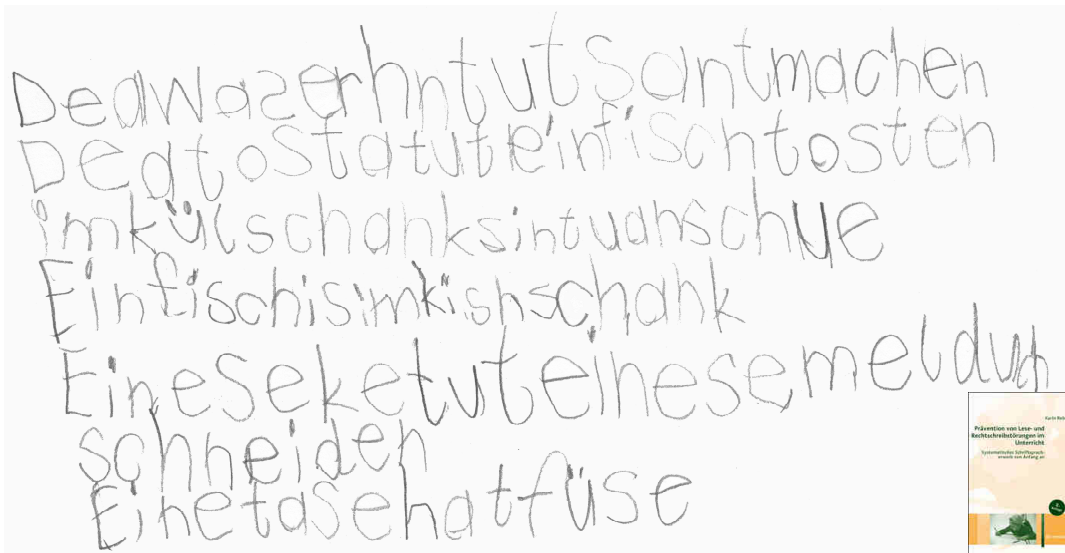 Dea waserhn tut Sant machen
Dea tosta tut ein fisch tosten
im külschank sint uah schue
Ein fisch is im kishschank
Eine Seke tut eine semel durh
schneiden
Eine tase hat füse
Karin Reb
Prävention von Lese- und
Rechtschreibstörungen im
Unterricht
Systematischer Schriftsprach-
erwerb von Anfang an